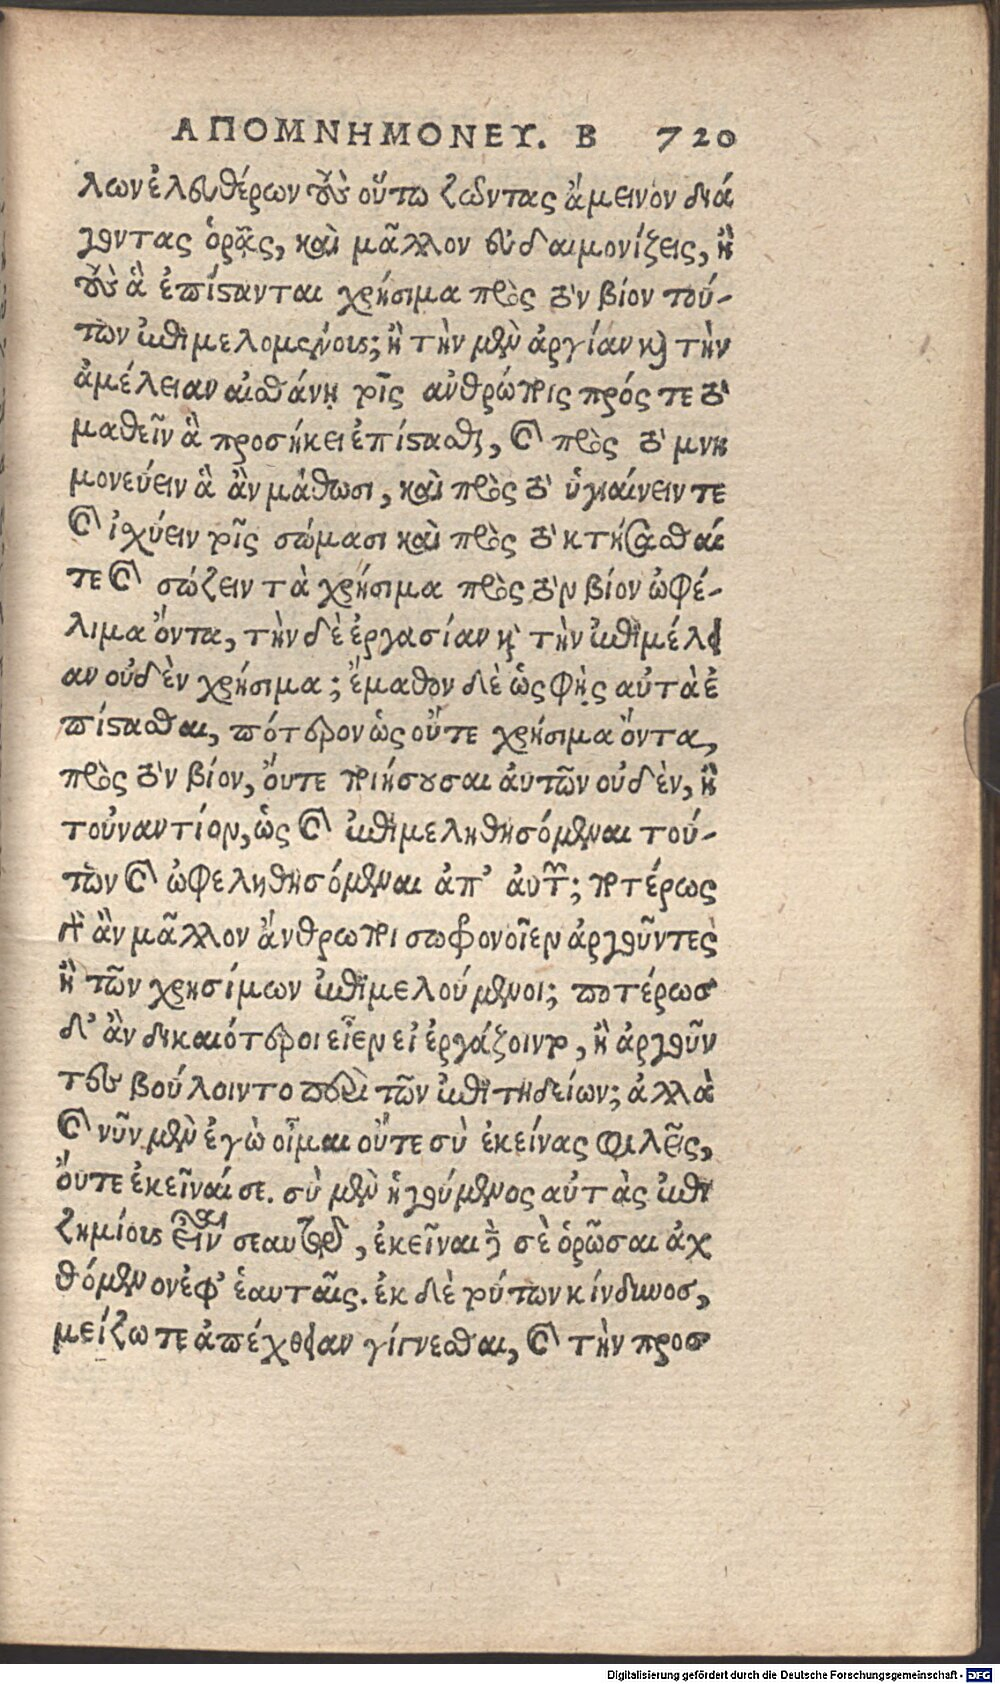 ΑΠΟΜΝΗΜΟΝΕΥ. Β 720
λων ἐλευθέρων τοὺς οὕτω ζῶντας ἄμεινον διά
γοντας ὁρᾷς, καὶ μᾶλλον εὐδαιμονίζεις, ἢ
τοὺς ἃ ἐπίστανται χρήσιμα πρὸς τὸν βίον τού-
των ἐπιμελομένους; ἢ τὴν μὲν ἀργίαν καὶ τὴν
ἀμέλειαν αἰσθάνῃ τοῖς ἀνθρώποις πρός τε τὸ
μαθεῖν ἃ προσήκει ἐπίστασθαι, καὶ πρὸς τὸ μνη
μονεύειν ἃ ἂν μάθωσι, καὶ πρὸς τὸ ὑγιαίνειν τε
καὶ ἰσχύειν τοῖς σώμασι καὶ πρὸς τὸ κτήσασθαί
τε καὶ σώζειν τὰ χρήσιμα πρὸς τὸν βίον ὠφέ-
λιμα ὄντα, τὴν δὲ ἐργασίαν καὶ τὴν ἐπιμέλει
αν οὐδὲν χρήσιμα; ἔμαθον δὲ ὡς φῂς αὐτὰ ἐ
πίστασθαι, πότερον ὡς οὔτε χρήσιμα ὄντα,
πρὸς τὸν βίον, ὄυτε ποιήσουσαι ἀυτῶν οὐδὲν, ἢ
τοὐναντίον, ὡς καὶ ἐπιμεληθησόμεναι τού-
των καὶ ὠφεληθησόμεναι ἀπ’ ἀυτῶν; ποτέρως
γὰρ ἂν μᾶλλον ἄνθρωποι σωφρονοῖεν ἀργοῦντες
ἢ τῶν χρησίμων ἐπιμελούμενοι; ποτέρωσ
δ’ ἂν δικαιότεροι εἶεν εἰ ἐργάζοιντο, ἢ ἀργοῦν
τες βούλοιντο περὶ τῶν ἐπιτηδείων; ἀλλὰ
καὶ νῦν μὲν ἐγὼ οἶμαι οὔτε σὺ ἐκείνας φιλεῖς,
ὄυτε ἐκεῖναί σε. σὺ μὲν ἡγούμενος αὐτὰς ἐπι
ζημίους εἶναι σεαυτῷ, ἐκεῖναι δὲ σὲ ὁρῶσαι ἀχ
θόμενον ἐφ’ ἑαυταῖς. ἐκ δὲ τούτων κίνδυνοσ,
μείζω τε ἀπέχθειαν γίγνεσθαι, καὶ τὴν προσ
Digitalisierung gefördert durch die Deutsche Forschungsgemeinschaft - DFG